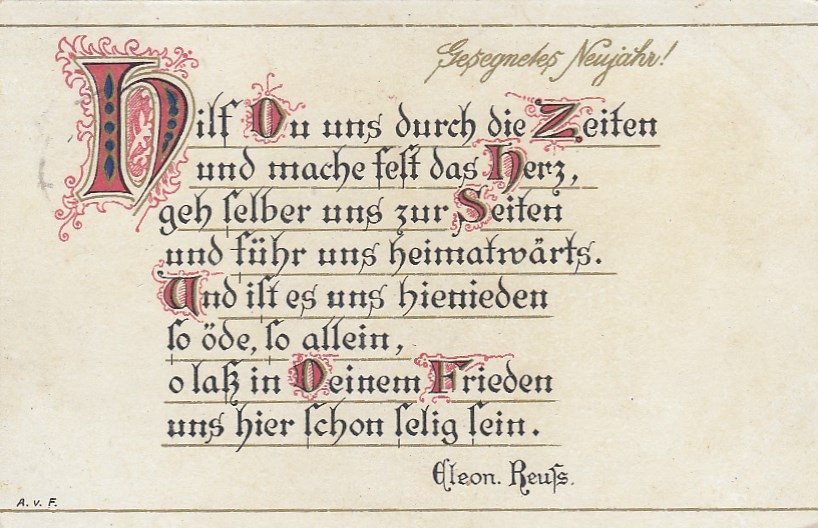 Gesegnetes Neujahr!
Hilf Du uns durch die Zeiten
und mache feſt das Herz,
geh ſelber uns zur Seiten
und führ uns heimatwärts.
Und iſt es uns hienieden
ſo öde, ſo allein,
o laß in Deinem Frieden
uns hier ſchon ſelig ſein.
Eleon. Reuſs.
A. v. F.